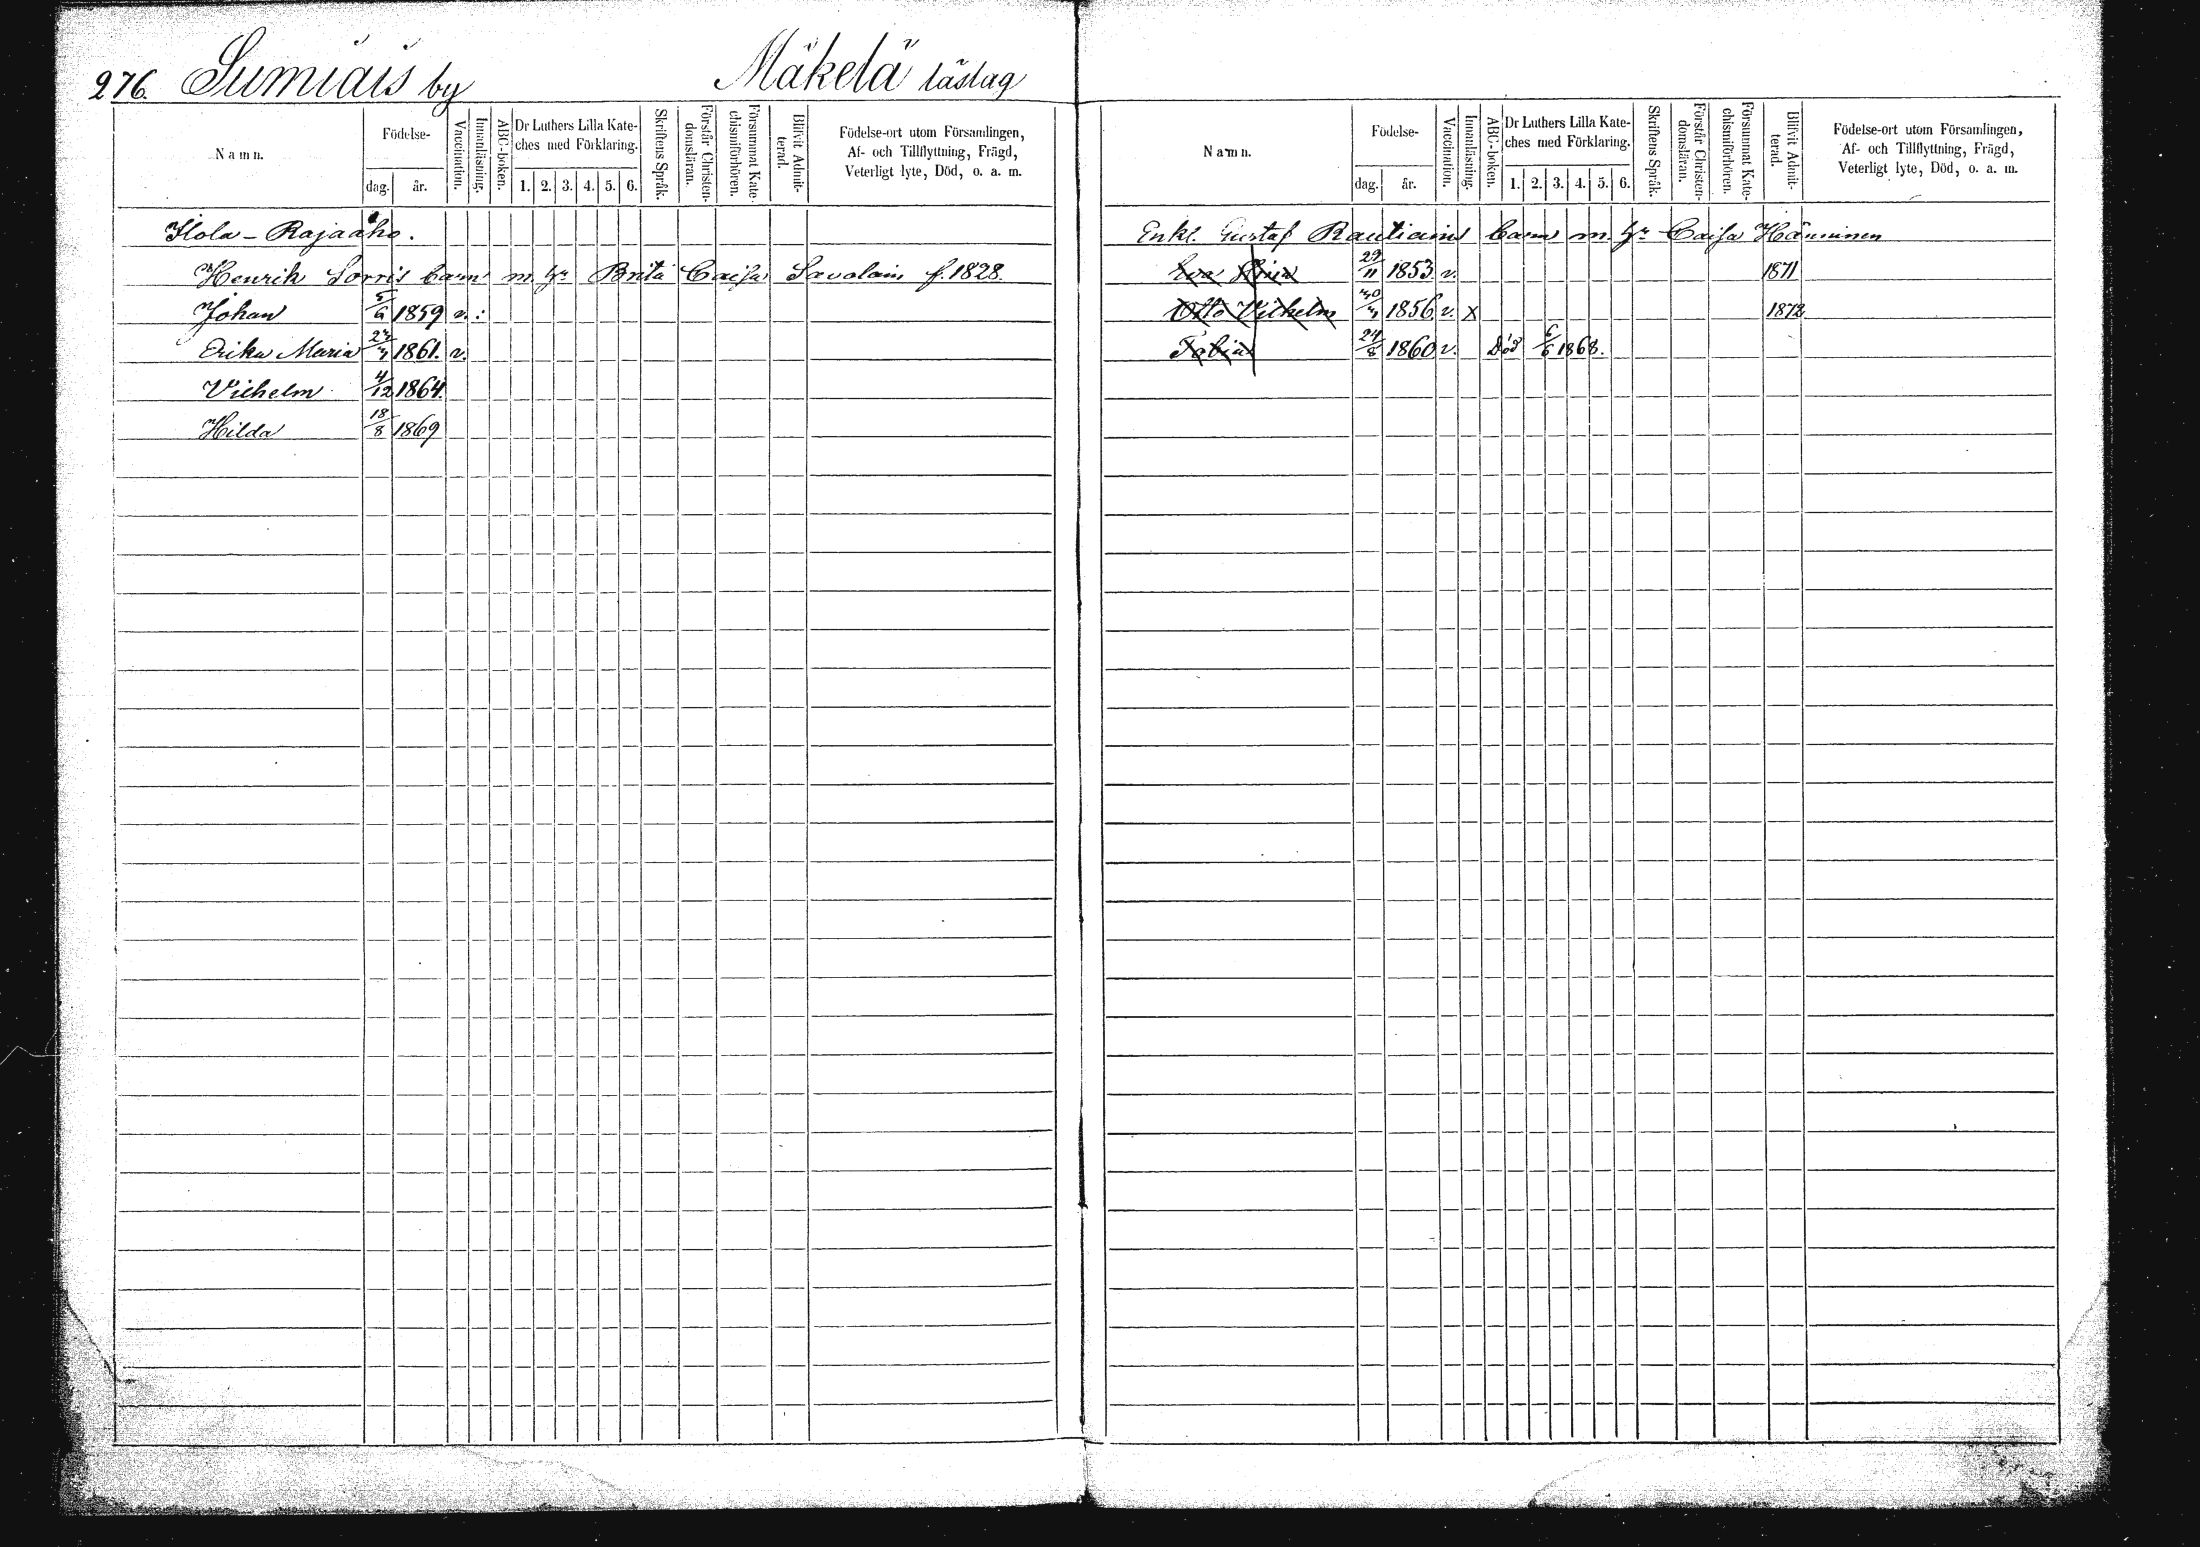 276. Sumiais by Mäkelä läslag
Namn.
Födelse-
dag.
år.
Vaccination.
Innanläsning.
ABC-boken.
Dr Luthers Lilla Kate-
ches med Förklaring.
1. 2. 3. 4. 5. 6.
Skriftens Språk.
Förstår Christen-
domsläran.
Försummat Kate-
chismiförhören.
Blifvit Admit-
terad.
Födelse-ort utom Församlingen,
Af- och Tillflyttning, Frägd,
Veterligt lyte, Död, o. a. m.
Ilola - Rajaaho.
Henrik Sorris barn m. hr. Brita Caisa Savolain f. 1828.
Johan 5/6 1859 v. :
Erika Maria 1861. v.
Vilhelm 4/12 1864.
Hilda 18/8 1869
Namn.
Födelse-
dag.
år.
Vaccination.
Innanläsning.
ABC-boken.
Dr Luthers Lilla Kate-
ches med Förklaring.
1. 2. 3. 4. 5. 6.
Skriftens Språk.
Förstår Christen-
domsläran.
Försummat Kate-
chismiförhören.
Blifvit Admit-
terad.
Födelse-ort utom Församlingen,
Af- och Tillflyttning, Frägd,
Veterligt lyte, Död, o. a. m.
Enkl. Gustaf Rautiains barn m. hr. Caisa Hänninen
Eva 29/11 1853 v. 1871
Otto Vilhelm 1856. v. X 1872
Tobias 24/8 1860 v. Död 6/6 1868.